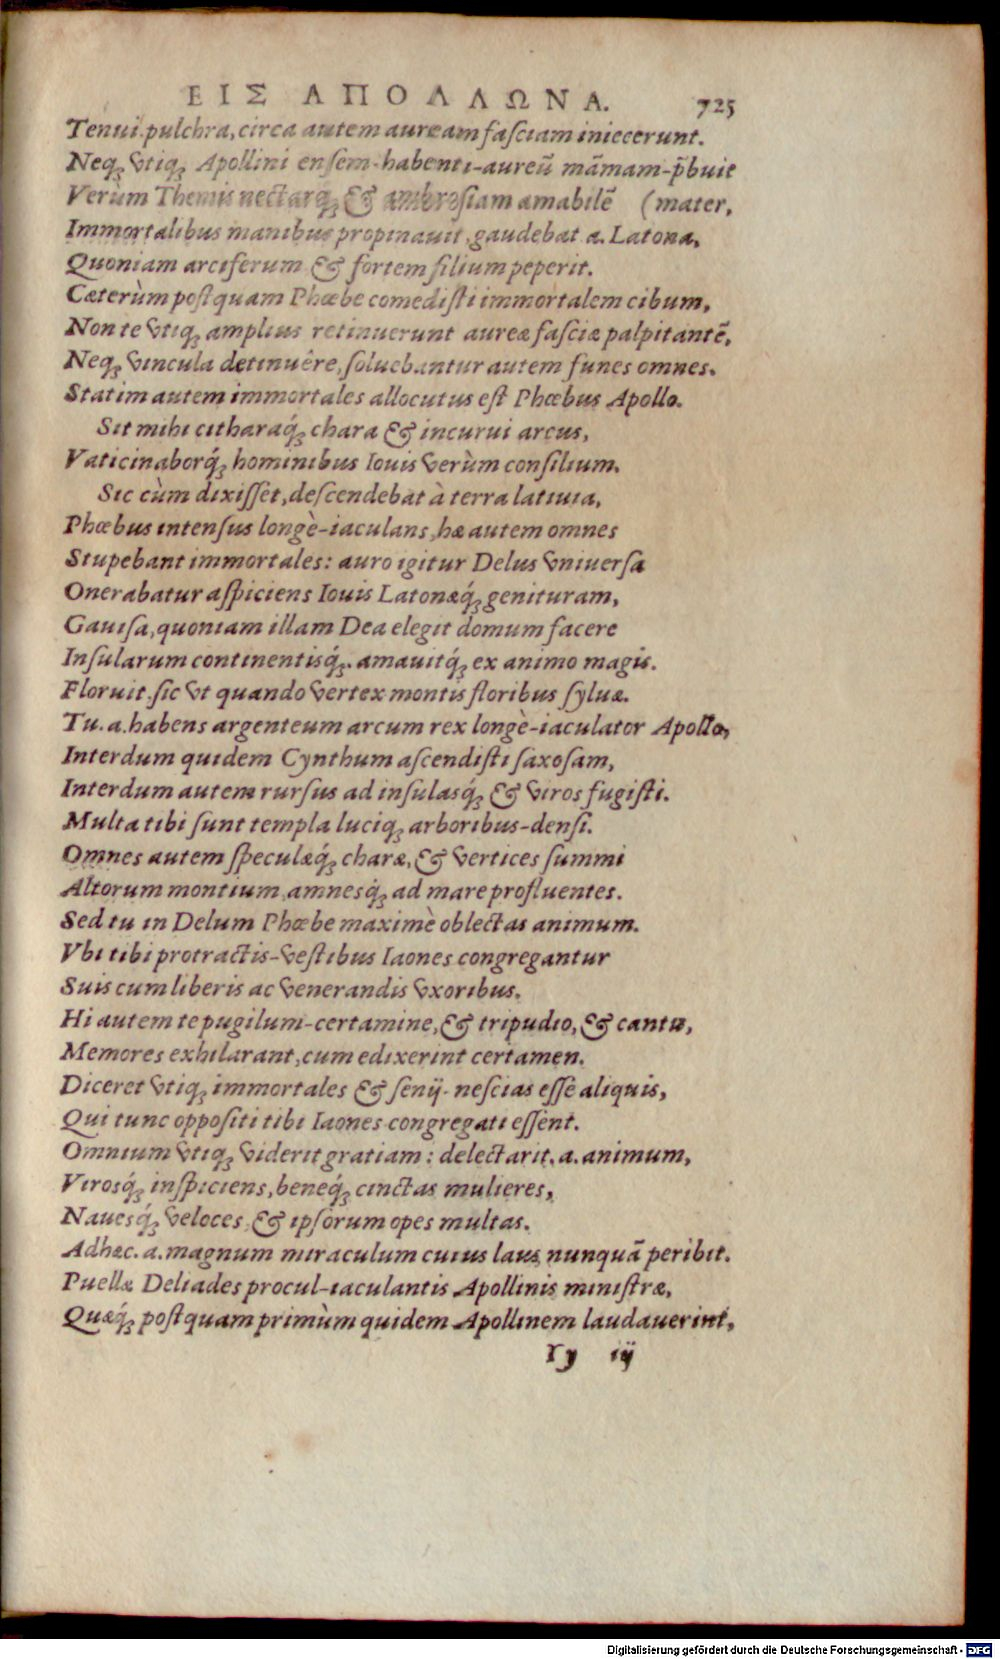 ΕΙΣ ΑΠΟΛΛΩΝΑ. 725
Tenui. pulchra, circa autem auream fasciam iniecerunt.
Neq; vtiq; Apollini ensem-habenti-aureū mām̄am-p̄buit
Verùm Themis nectarq́; & ambrosiam amabilē (mater,
Immortalibus manibus propinauit, gaudebat a. Latona,
Quoniam arciferum & fortem filium peperit.
Cæterùm postquam Phœbe comedisti immortalem cibum,
Non te vtiq; amplius retinuerunt aureæ fasciæ palpitantē,
Neq; vincula detinuêre, soluebantur autem funes omnes.
Statim autem immortales allocutus est Phœbus Apollo.
Sit mihi citharaq́; chara & incurui arcus,
Vaticinaborq́; hominibus Iouis verùm consilium.
Sic cùm dixisset, descendebat à terra latiuia,
Phœbus intensus longè-iaculans, hæ autem omnes
Stupebant immortales: auro igitur Delus vniuersa
Onerabatur aspiciens Iouis Latonæq́; genituram,
Gauisa, quoniam illam Dea elegit domum facere
Insularum continentisq́;. amauitq́; ex animo magis.
Floruit. sic vt quando vertex montis floribus syluæ.
Tu. a. habens argenteum arcum rex longè-iaculator Apollo,
Interdum quidem Cynthum ascendisti saxosam,
Interdum autem rursus ad insulasq́; & viros fugisti.
Multa tibi sunt templa luciq; arboribus-densi.
Omnes autem speculæq́; charæ, & vertices summi
Altorum montium, amnesq́; ad mare profluentes.
Sed tu in Delum Phœbe maximè oblectas animum.
Vbi tibi protractis-vestibus Iaones congregantur
Suis cum liberis ac venerandis vxoribus.
Hi autem te pugilum-certamine, & tripudio, & cantu,
Memores exhilarant, cum edixerint certamen.
Diceret vtiq; immortales & senij- nescias esse aliquis,
Qui tunc oppositi tibi Iaones congregati essent.
Omnium vtiq; viderit gratiam: delectarit. a. animum,
Virosq́; inspiciens, beneq́; cinctas mulieres,
Nauesq́; veloces, & ipsorum opes multas.
Adhæc. a. magnum miraculum cuius laus nunquā peribit.
Puellæ Deliades procul-iaculantis Apollinis ministræ,
Quæq́; postquam primùm quidem Apollinem laudauerint,
Yy iij
Digitalisierung gefördert durch die Deutsche Forschungsgemeinschaft - DFG